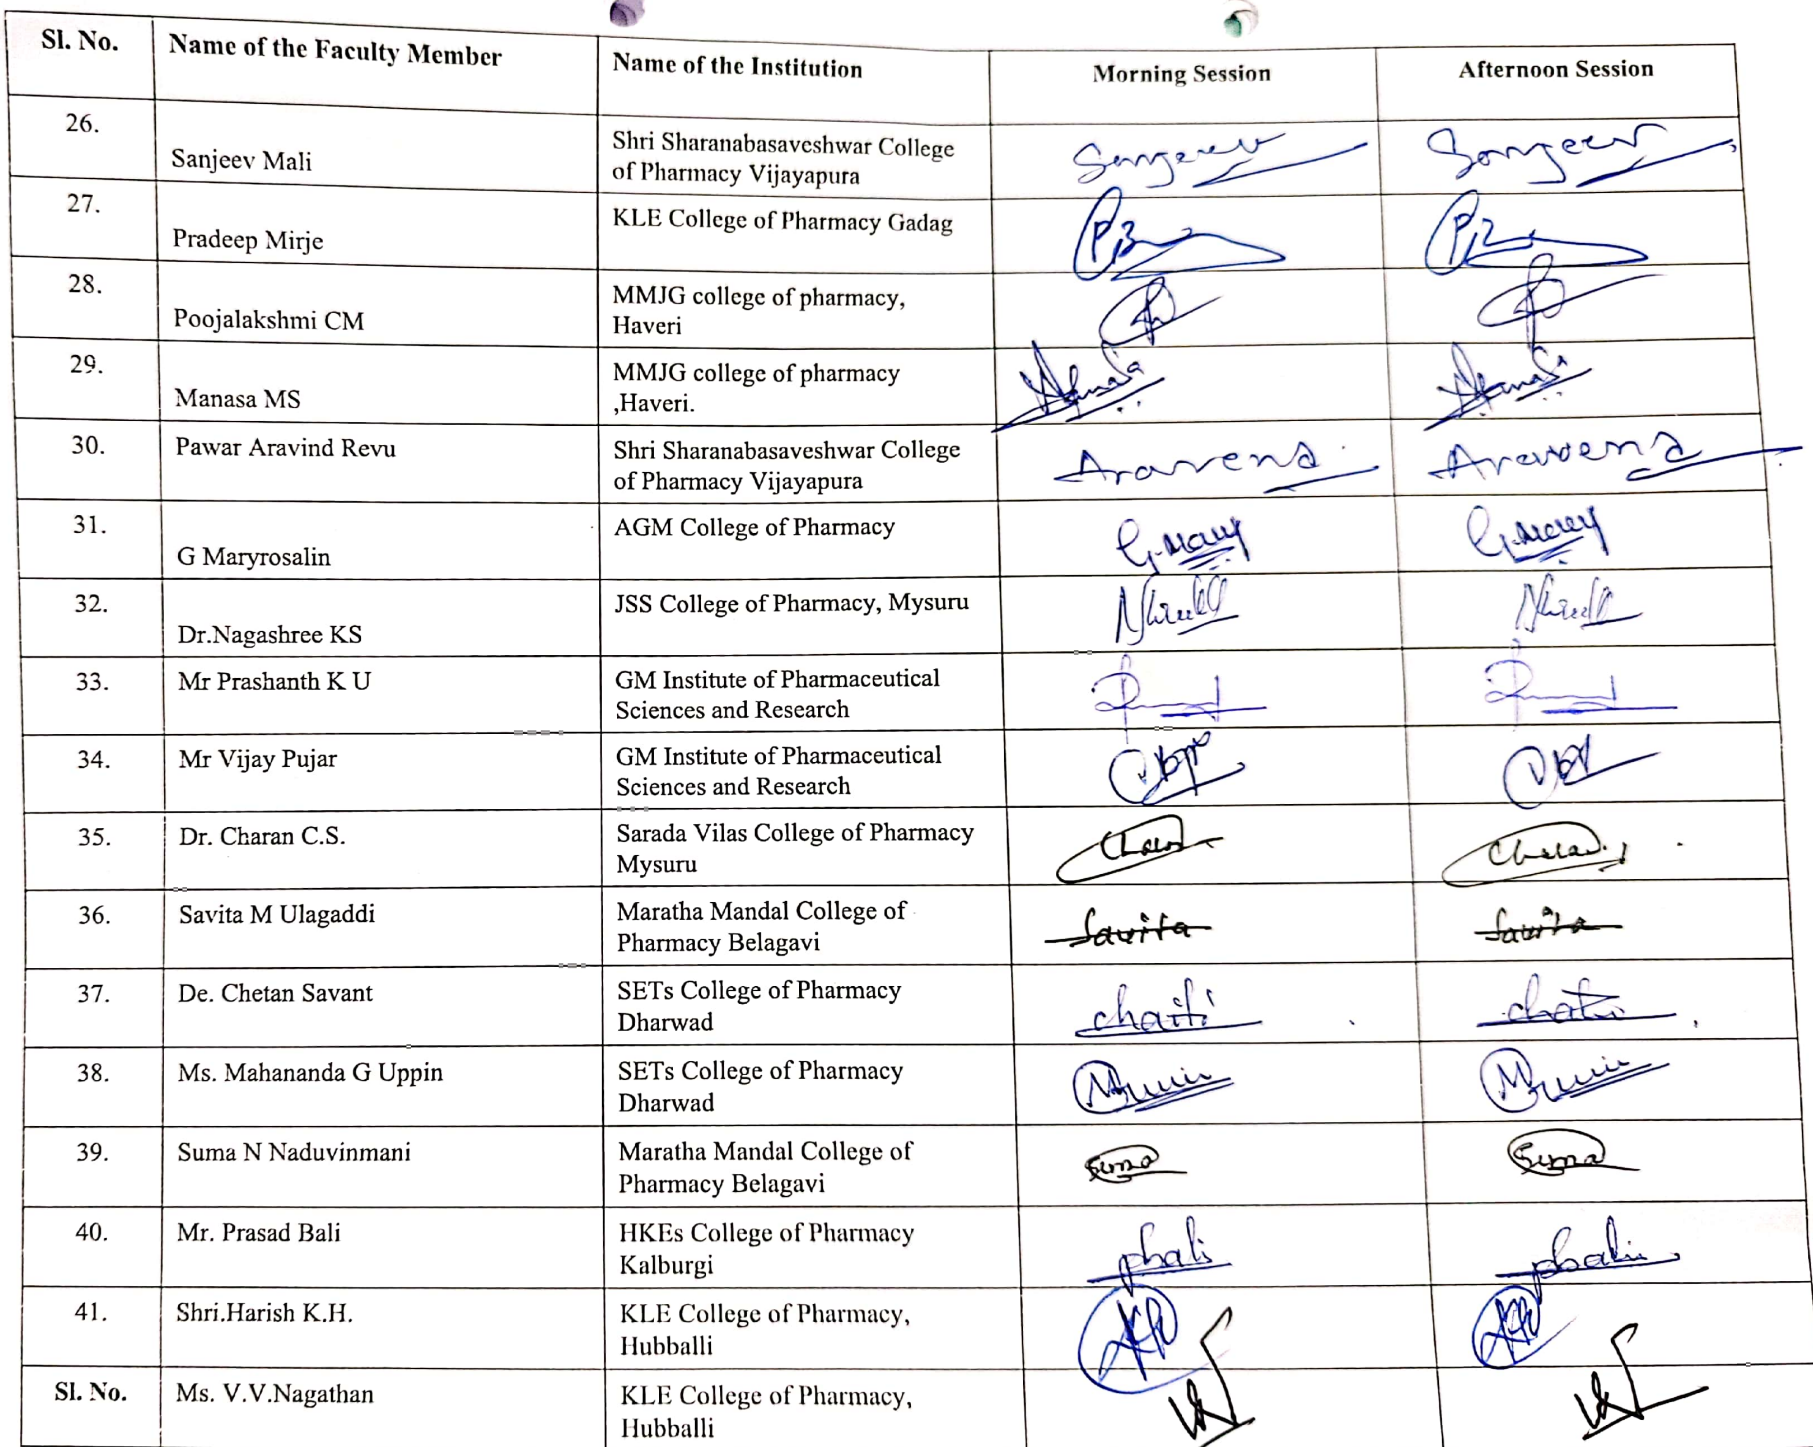 Sl. No. Name of the Faculty Member Name of the Institution Morning Session Afternoon Session
26. Sanjeev Mali Shri Sharanabasaveshwar College
of Pharmacy Vijayapura Sanjeev Sanjeev
27. Pradeep Mirje KLE College of Pharmacy Gadag
28. Poojalakshmi CM MMJG college of pharmacy,
Haveri
29. Manasa MS MMJG college of pharmacy
,Haveri.
30. Pawar Aravind Revu Shri Sharanabasaveshwar College
of Pharmacy Vijayapura
31. G Maryrosalin AGM College of Pharmacy G.Mary G.Mary
32. Dr.Nagashree KS JSS College of Pharmacy, Mysuru
33. Mr Prashanth K U GM Institute of Pharmaceutical
Sciences and Research
34. Mr Vijay Pujar GM Institute of Pharmaceutical
Sciences and Research
35. Dr. Charan C.S. Sarada Vilas College of Pharmacy
Mysuru
36. Savita M Ulagaddi Maratha Mandal College of
Pharmacy Belagavi Savita Savita
37. De. Chetan Savant SETs College of Pharmacy
Dharwad
38. Ms. Mahananda G Uppin SETs College of Pharmacy
Dharwad
39. Suma N Naduvinmani Maratha Mandal College of
Pharmacy Belagavi Suma Suma
40. Mr. Prasad Bali HKEs College of Pharmacy
Kalburgi pbali pbali
41. Shri.Harish K.H. KLE College of Pharmacy,
Hubballi
Sl. No. Ms. V.V.Nagathan KLE College of Pharmacy,
Hubballi